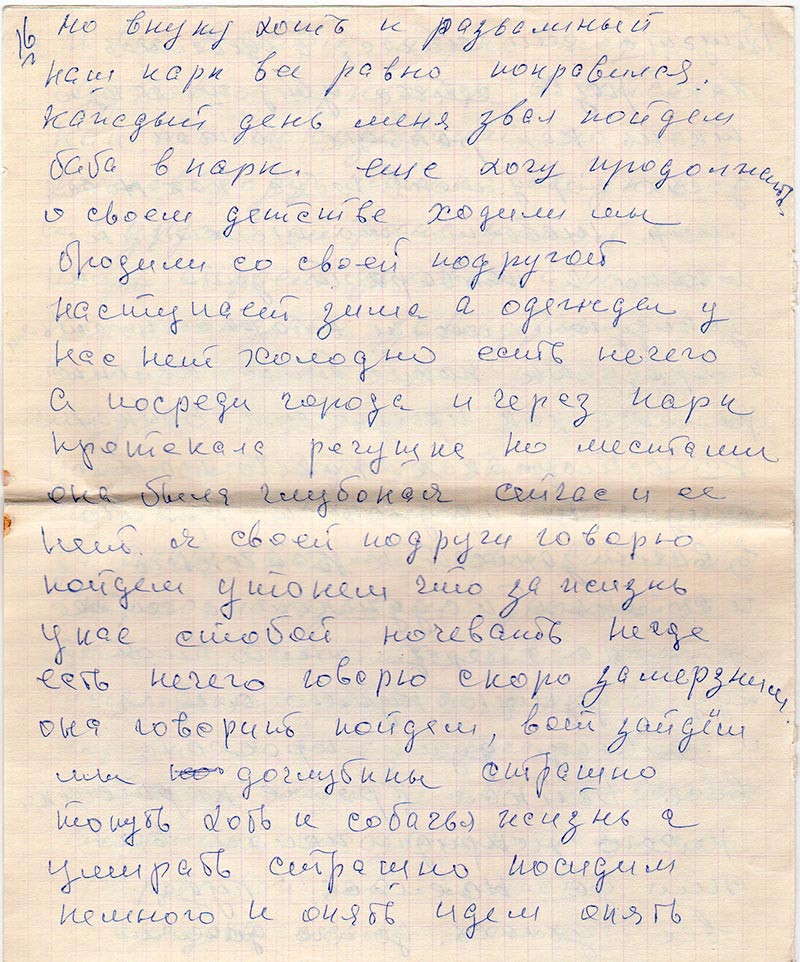 26
но внуку хоть и развалиный
наш парк все равно понравился.
каждый день меня звал пойдем
баба в парк. еще хочу продолжать
о своем детстве ходили мы
бродили со своей подругой
наступает зима а одежды у
нас нет холодно есть нечего
а посреди города и через парк
протекала речушка но местами
она была глубокая сейчас и ее
нет. я своей подруги говорю
пойдем утонем что за жизнь
у нас стобой ночевать негде
есть нечего говорю скоро замерзним.
она говорить пойдем, вот зайдём
мы доглубины страшно
тонуть хоть и собачья жизнь а
умирать страшно посидим
немного и опять идем опять